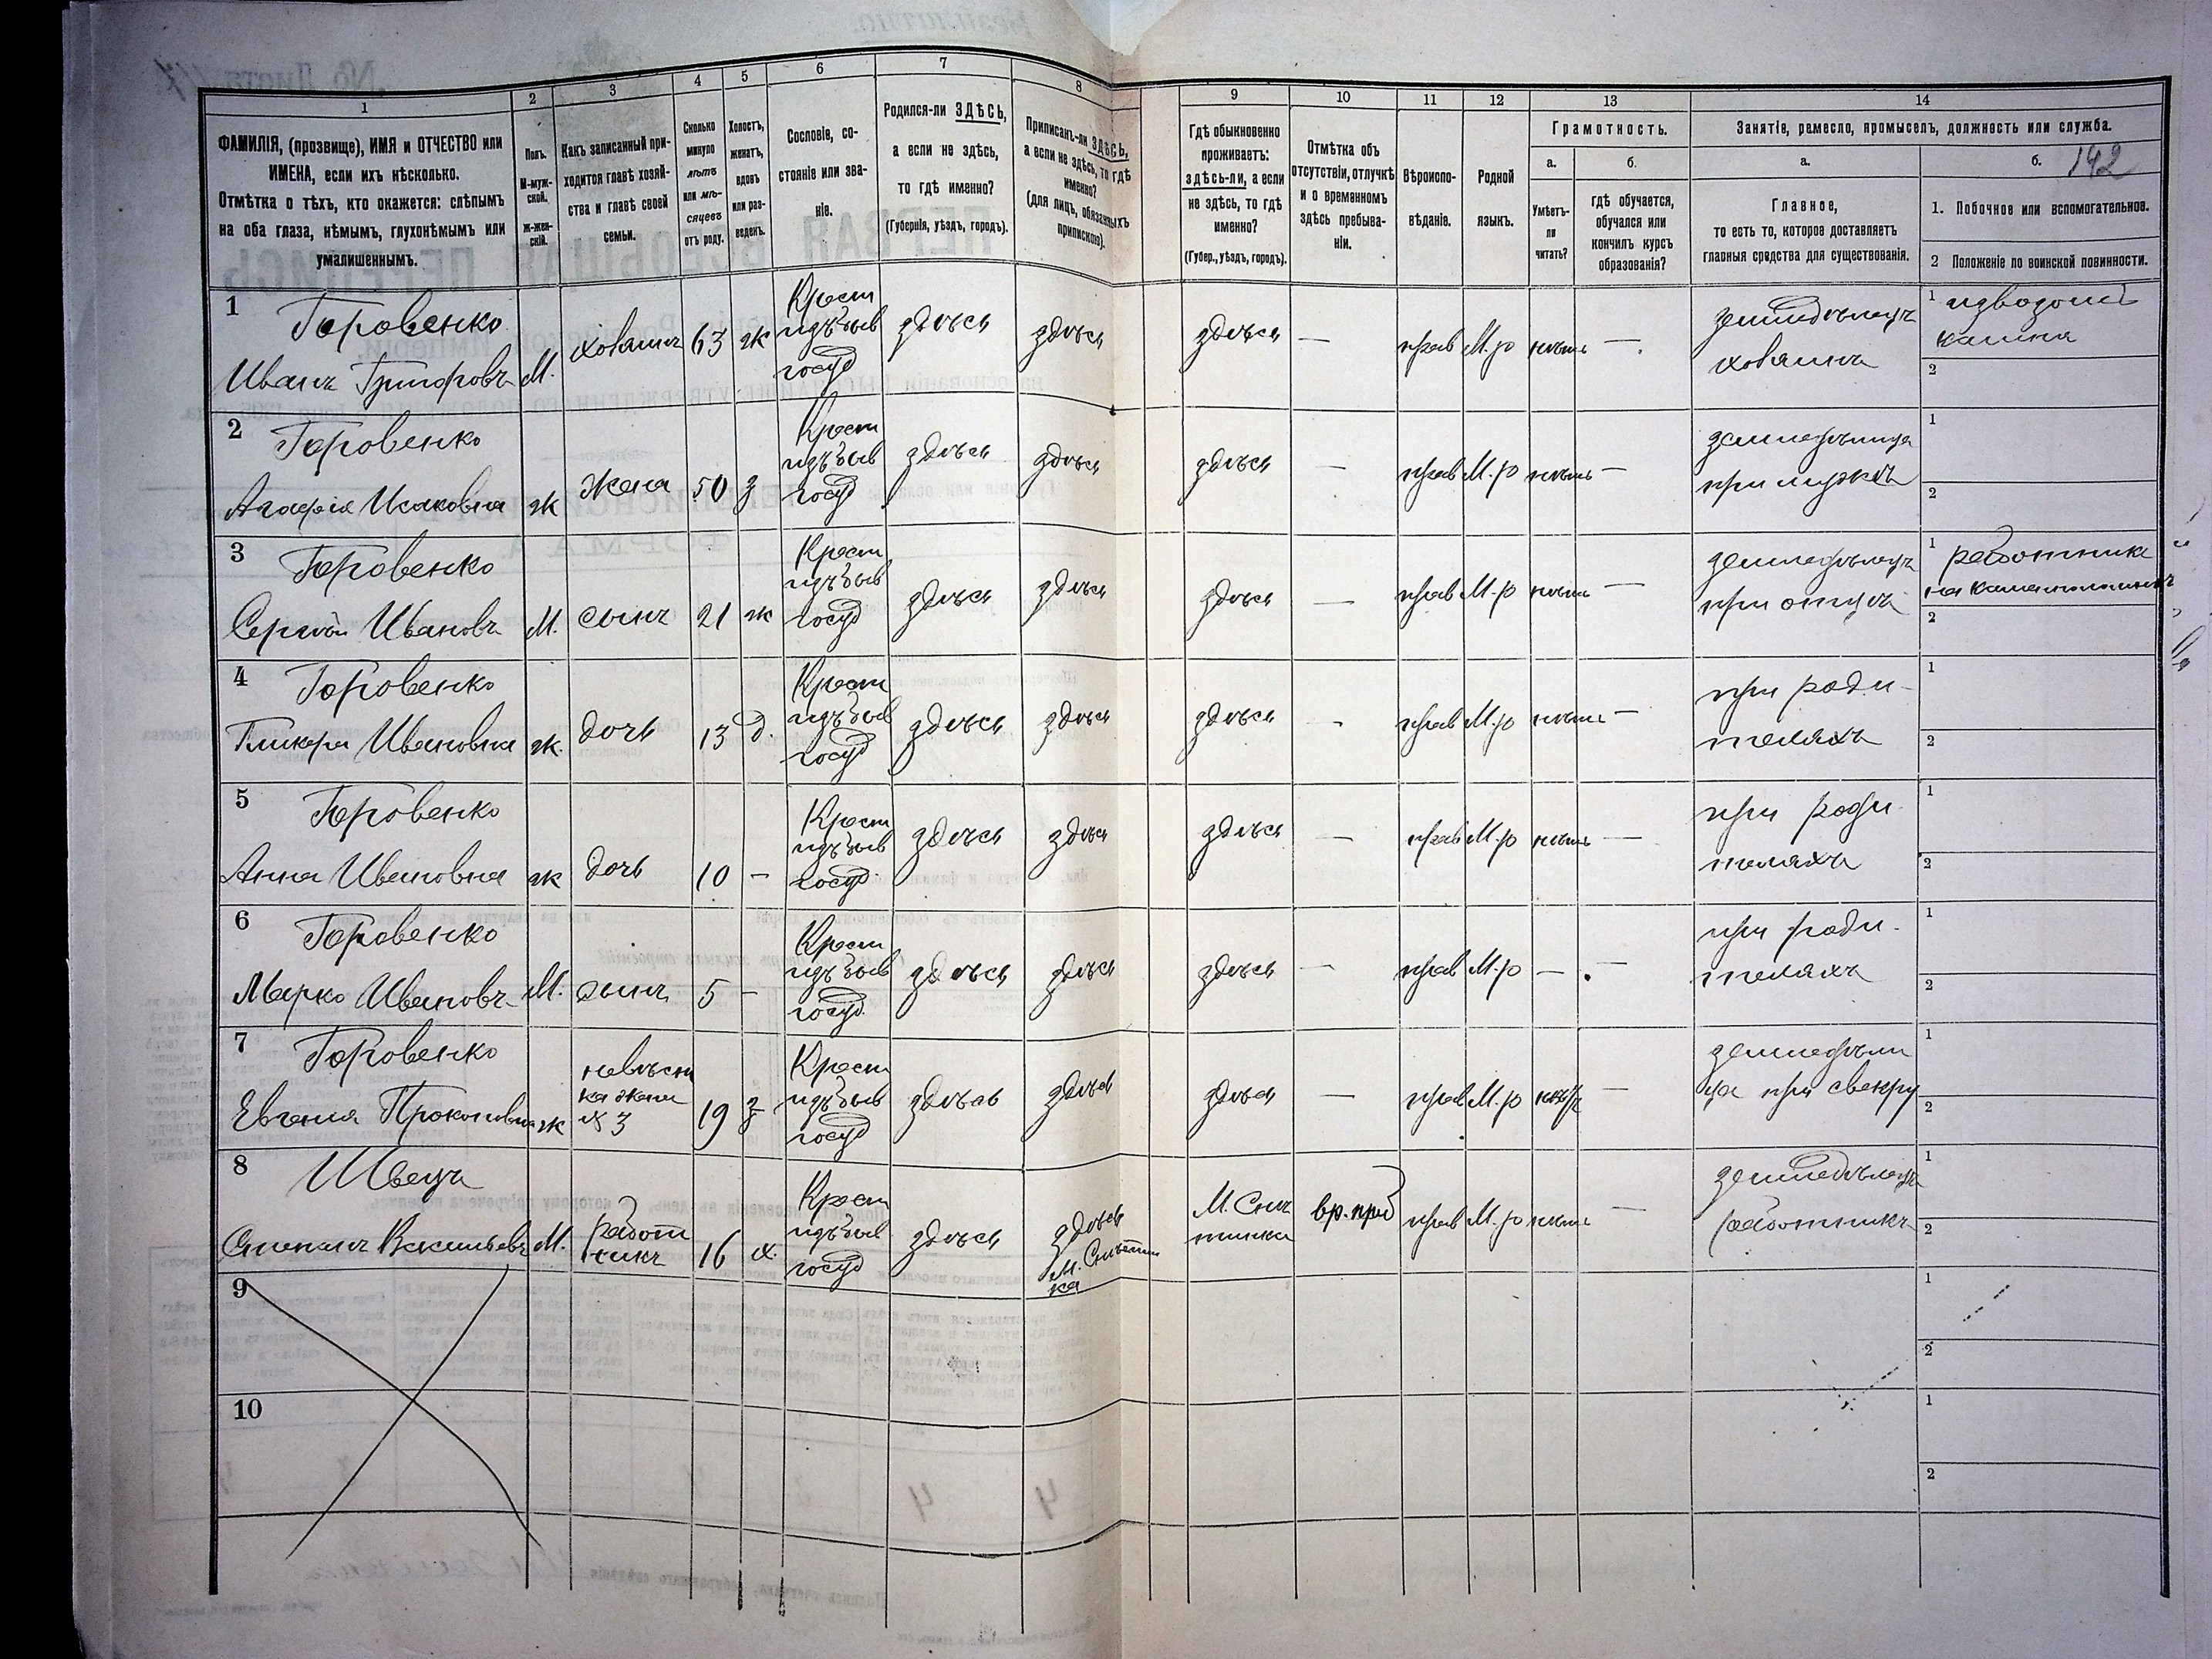 142
1
2
3
4
5
6
7
8
9
10
11
12
13
14
ФАМИЛІЯ, (прозвище), ИМЯ и ОТЧЕСТВО или
ИМЕНА, если ихъ нѣсколько.
Отмѣтка о тѣхъ, кто окажется: слѣпымъ
на оба глаза, нѣмымъ, глухонѣмымъ или
умалишеннымъ.
Полъ.
М-муж-
ской.
Ж-жен-
скій.
Какъ записанный при-
ходится главѣ хозяй-
ства и главѣ своей
семьи.
Сколько
минуло
лѣтъ
или мѣ-
сяцевъ
отъ роду.
Холостъ,
женатъ,
вдовъ
или раз-
веденъ.
Сословіе, со-
стояніе или зва-
ніе.
Родился-ли ЗДѢСЬ,
а если не здѣсь,
то гдѣ именно?
(Губернія, уѣздъ, городъ).
Приписанъ-ли ЗДѢСЬ,
а если не здѣсь, то гдѣ
именно?
(для лицъ, обязанныхъ
припискою).
Гдѣ обыкновенно
проживаетъ:
здѣсь-ли, а если
не здѣсь, то гдѣ
именно?
(Губер., уѣздъ, городъ).
Отмѣтка объ
отсутствіи, отлучкѣ
и о временномъ
здѣсь пребыва-
ніи.
Вѣроиспо-
вѣданіе.
Родной
языкъ.
Грамотность.
а.
б.
Умѣетъ-
ли
читать?
гдѣ обучается,
обучался или
кончилъ курсъ
образованія?
Занятіе, рамесло, промыселъ, должность или служба.
а.
б.
Главное,
то есть то, которое доставляетъ
главныя средства для существованія.
1. Побочное или вспомогательное.
2 Положеніе по воинской повинности.
1
Горовенко
Иванъ Григоровъ
М.
хозяинъ
63
ж
Крест
изъ быв
госуд
здѣсь
здѣсь
здѣсь
—
прав
М.р
нѣтъ
—
земледѣлецъ
хозяинъ
1
2
2
Горовенко
Агафія Исаковна
ж
жена
50
з
Крест
изъ быв
госуд
здѣсь
здѣсь
здѣсь
—
прав
М.р
нѣтъ
—
при мужѣ
1
2
3
Горовенко
Сергѣй Ивановъ
М.
сынъ
21
ж
Крест
изъ быв
госуд
здѣсь
здѣсь
здѣсь
—
прав
М.р
нѣтъ
—
земледѣлецъ
при отцѣ
1 работникъ
2
4
Горовенко
Гликера Ивановна
ж.
дочь
13
д.
Крест
изъ быв
госуд
здѣсь
здѣсь
здѣсь
—
прав
М.р
нѣтъ
—
при роди-
теляхъ
1
2
5
Горовенко
Анна Ивановна
ж
дочь
10
-
Крест
изъ быв
госуд.
здѣсь
здѣсь
здѣсь
—
прав
М.р
нѣтъ
—
при роди-
теляхъ
1
2
6
Горовенко
Марко Ивановъ
М.
сынъ
5
-
Крест
изъ быв
госуд.
здѣсь
здѣсь
здѣсь
—
прав
М.р
—
—
при роди-
теляхъ
1
2
7
Горовенко
Евгенія Прокоповна
ж
невѣст
ка жена
№ 3
19
з
Крест
изъ быв
госуд
здѣсь
здѣсь
здѣсь
—
прав
М.р
нѣтъ
—
земледѣли
ца при свекру
1
2
8
Швець
Степанъ Васильевъ
М.
работ
никъ
16
х.
Крест
изъ быв
госуд
здѣсь
здѣсь
М. Смѣтан
ка
вр. преб
прав
М.р
нѣтъ
—
земледѣлецъ
работникъ
1
2
9
1
2
10
1
2